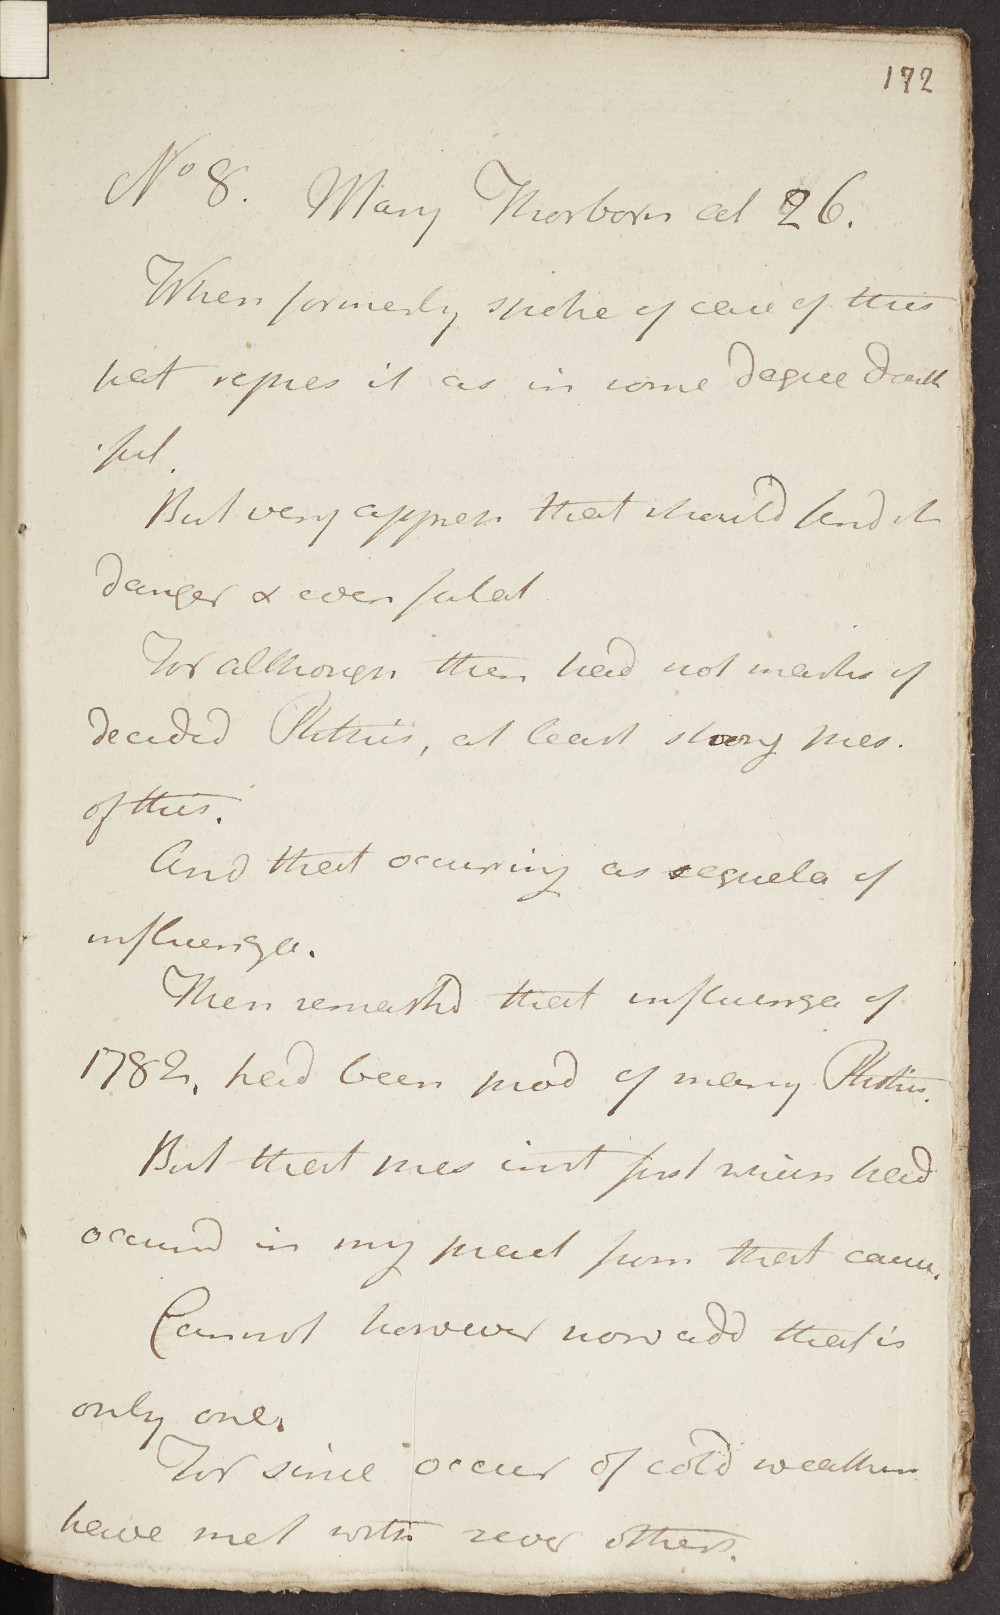 172
No 8. Mary Thorborn aet 26.
When formerly spoke of case of this
pat repres it as in some degree doubt
ful.
But very appreh that should find it
danger & even fatal
For although then had not marks of
decided Phthisis, at least strong pres.
of this.
And that occurring as sequela of
influenza.
Then remarkd that influenza of
1782, had been prod of many Phthisis.
But that pres inst first which had
occurred in my pract from that cause.
Cannot however now add that is
only one.
For since occur of cold weather
have met with sever others.